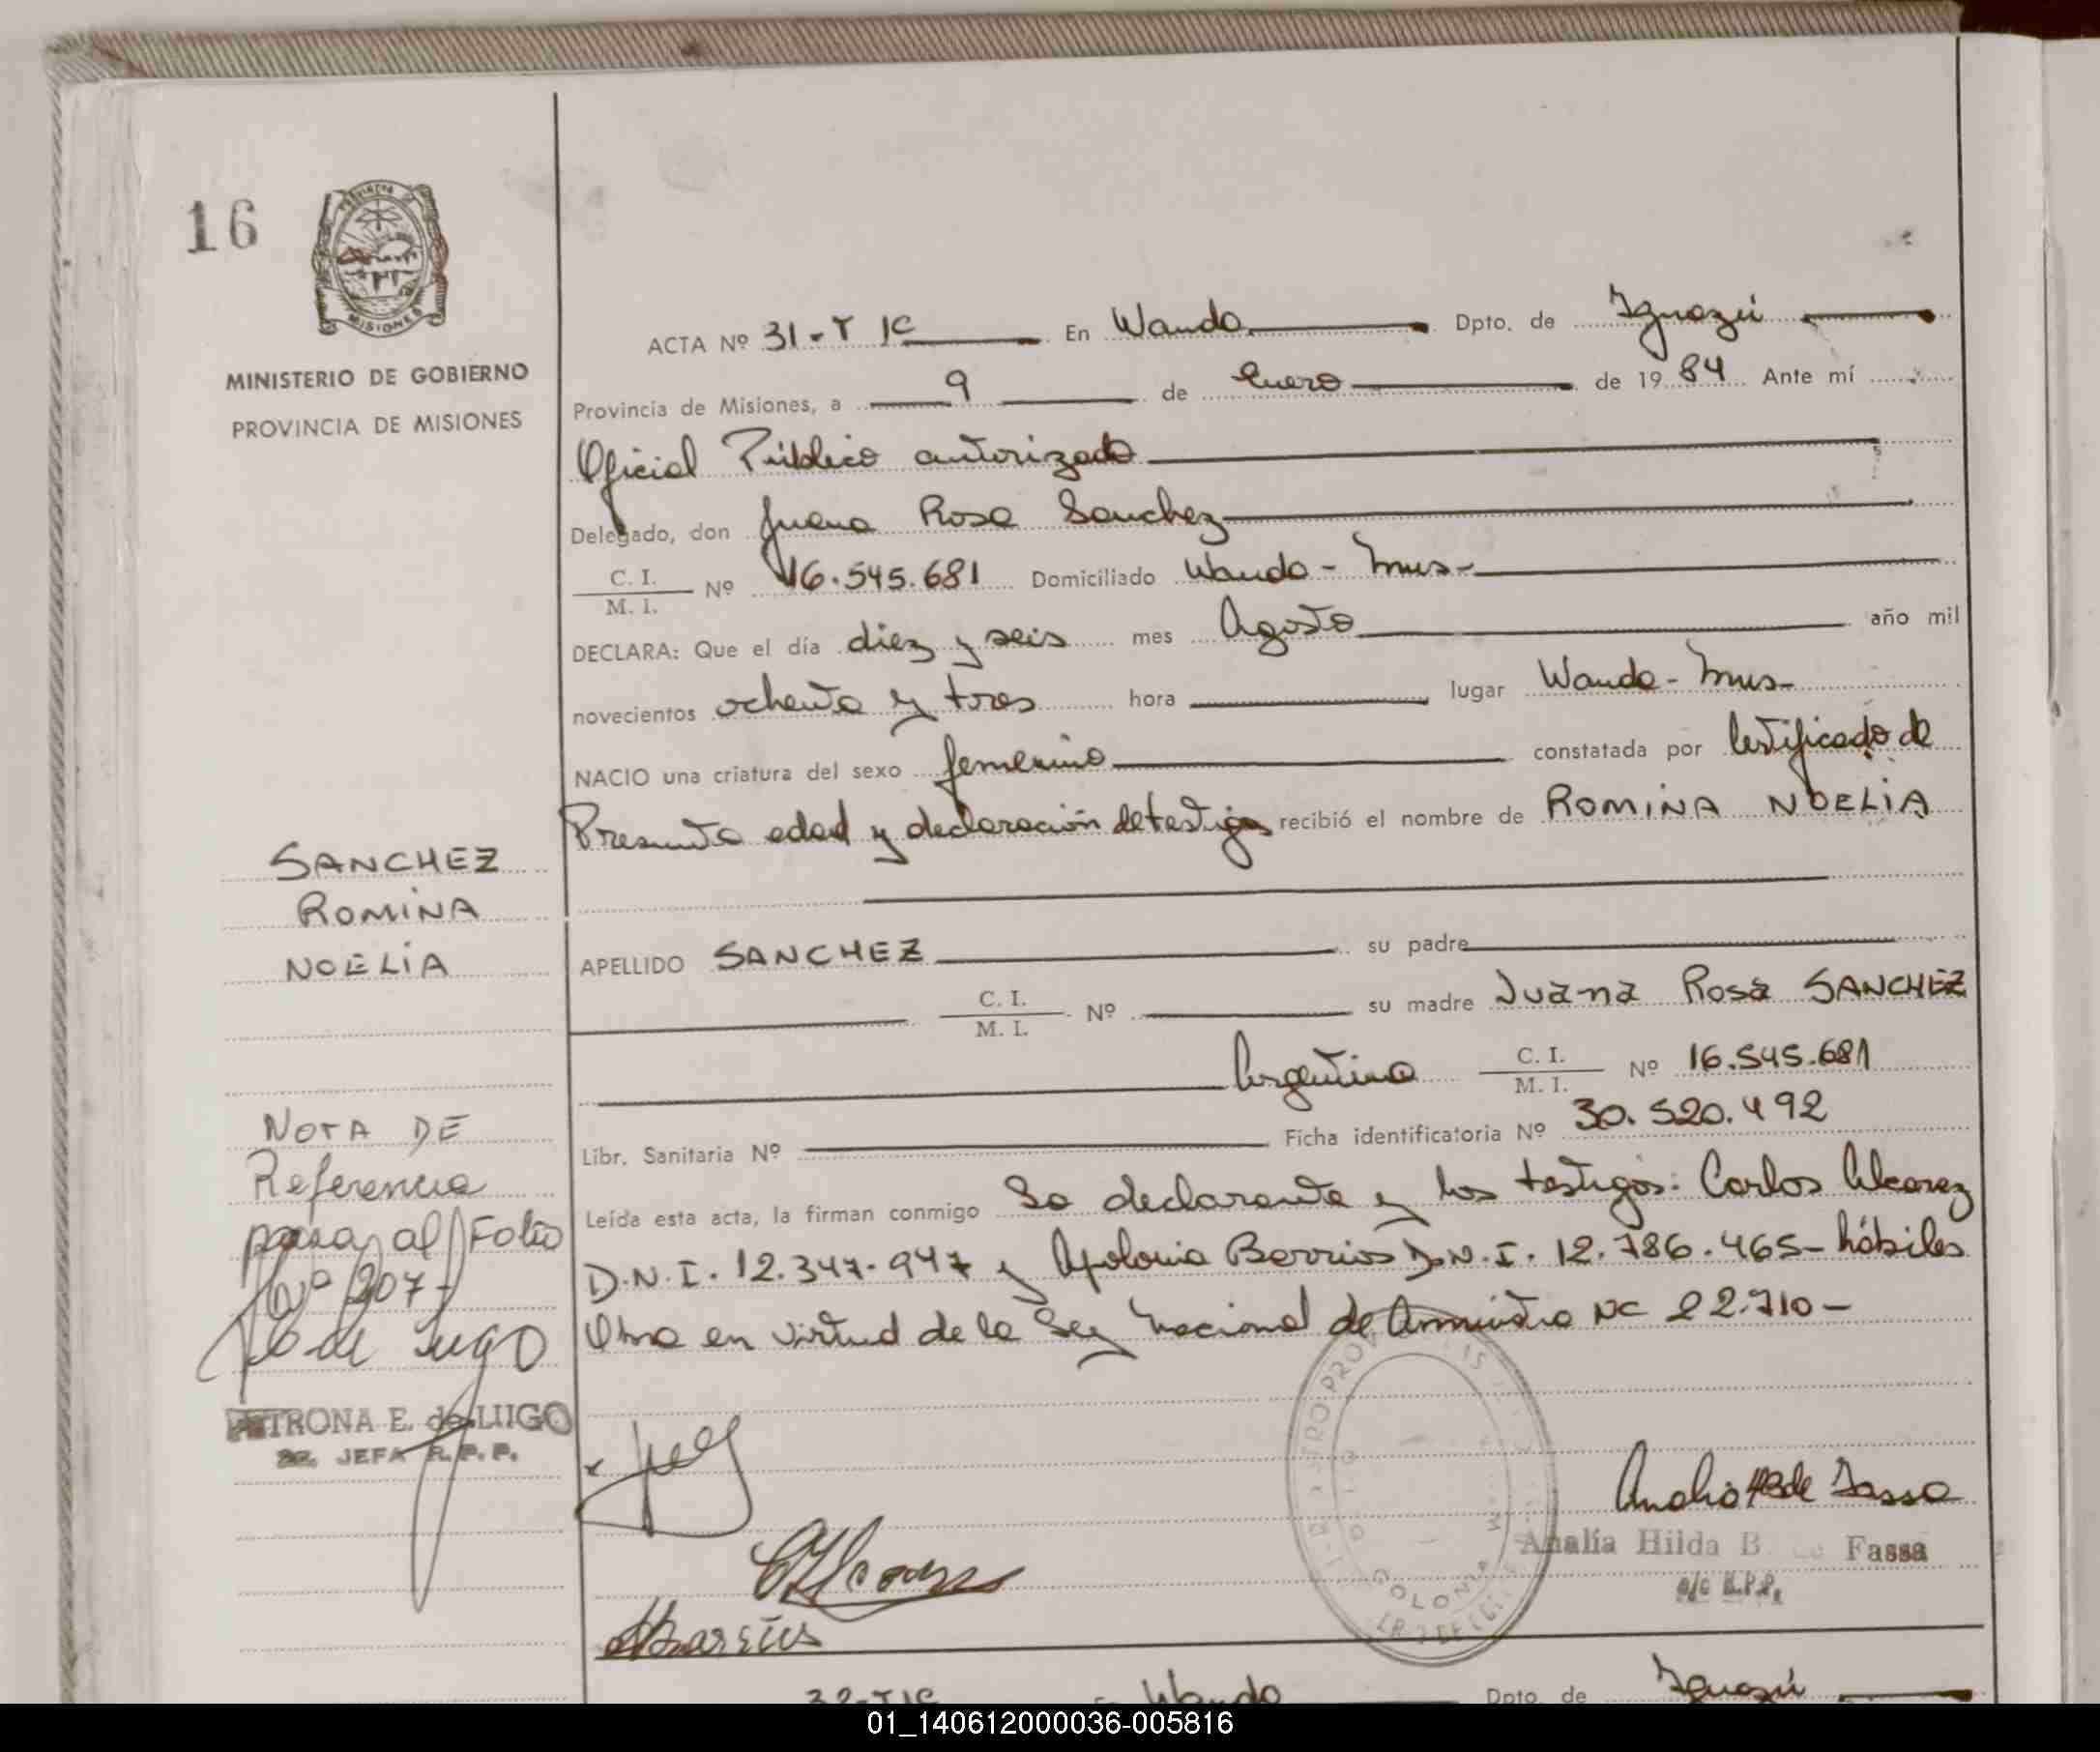 16
PROVINCIA
MISIONES
MINISTERIO DE GOBIERNO
PROVINCIA DE MISIONES
ACTA Nº 31-T 1C En Wanda Dpto. de Iguazú
Provincia de Misiones, a 9 de Enero de 1984 Ante mí
Oficial Público autorizado
Delegado, don Juana Rosa Sanchez
C. I.
M. I. Nº 16.545.681 Domiciliado Wanda - Mns-
DECLARA: Que el día diez y seis mes Agosto año mil
novecientos ochenta y tres hora lugar Wanda - Mns-
NACIO una criatura del sexo femenino constatada por Certificado de
Presunta edad y declaración de testigos recibió el nombre de ROMINA NOELIA
SANCHEZ
ROMINA
NOELIA
APELLIDO SANCHEZ su padre
C. I.
M. I. Nº su madre Juana Rosa SANCHEZ
Argentina C. I.
M. I. Nº 16.545.681
Libr. Sanitaria Nº Ficha identificatoria Nº 30.520.492
Leída esta acta, la firman conmigo La declarante y los testigos: Carlos Alcarez
D.N.I. 12.347.947 y Apolonia Berrios D.N.I. 12.786.465- hábiles
Obra en virtud de la Ley Nacional de Amnistia Nº 22.710-
NOTA DE
Referencia
pasa al Folio
Nº 207-
de Lugo
PETRONA E. de LUGO
JEFA R. P. P.
Analia H B de Fassa
Analía Hilda B. de Fassa
a/c R.P.P.
COLONIA
32-T1C En Wanda Dpto. de Iguazú
01_140612000036-005816